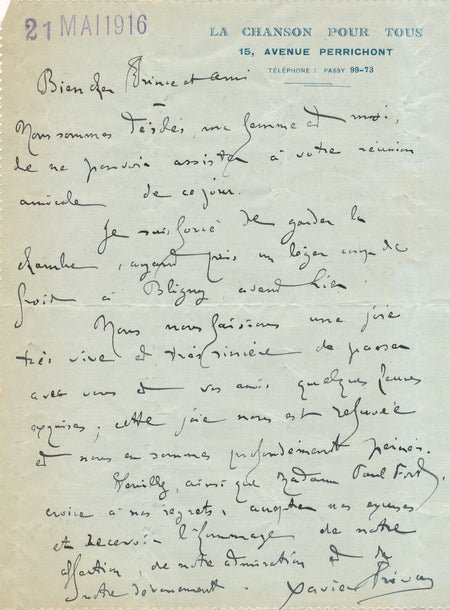 21 MAI 1916
LA CHANSON POUR TOUS
15, AVENUE PERRICHONT
TÉLÉPHONE : PASSY 99-73
Bien cher Prince et ami
Nous sommes désolés, ma femme et moi,
de ne pouvoir assister à votre réunion
amicale de ce jour.
Je suis forcé de garder la
chambre, ayant pris un léger coup de
froid à Bligny, avant hier.
Nous nous faisions une joie
très vive et très sincère de passer
avec vous et vos amis quelques heures
exquises ; cette joie nous est refusée
et nous en sommes profondément peinés.
Veuillez, ainsi que Madame Paul Fort,
croire à nos regrets, accepter nos excuses
et recevoir l'hommage de notre
affection, de notre admiration et de
notre dévouement.
Xavier Privas